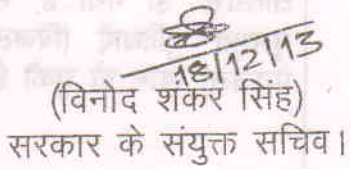 18/12/13
(विनोद शंकर सिंह)
सरकार के संयुक्त सचिव।